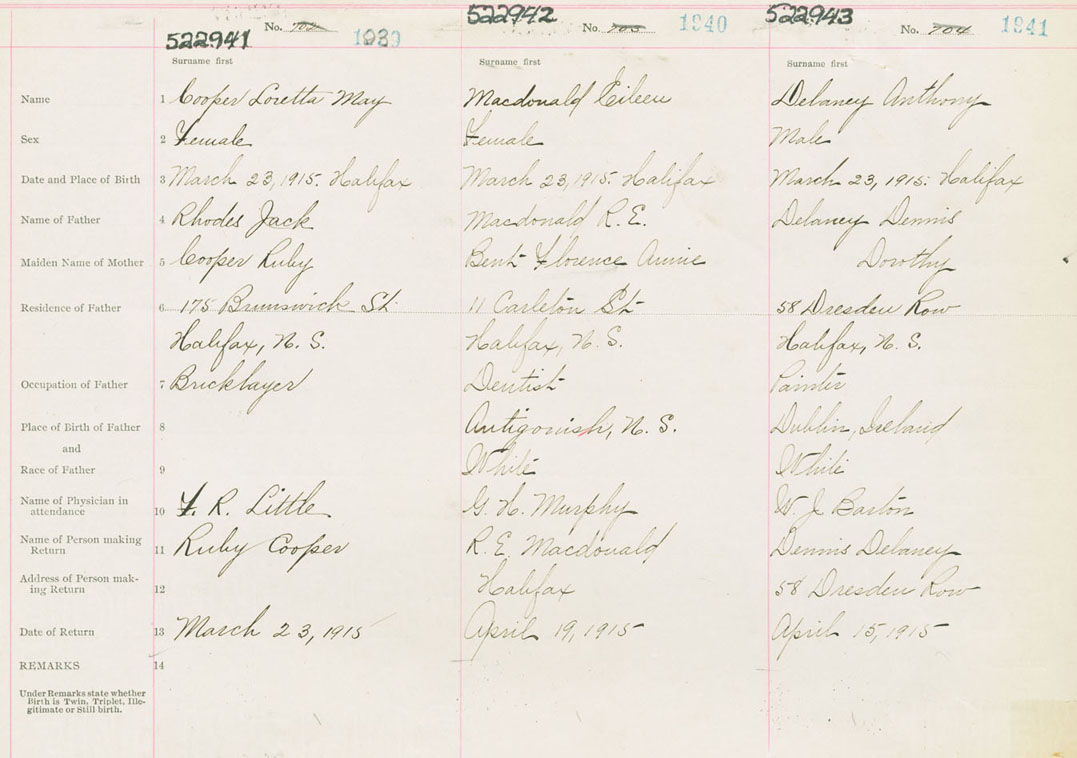 522941 No. 702 1939
522942 No. 703 1940
522943 No. 704 1941
Surname first Surname first Surname first
Name 1 Cooper Loretta May Macdonald Eileen Delaney Anthony
Sex 2 Female Female Male
Date and Place of Birth 3 March 23, 1915. Halifax March 23, 1915. Halifax March 23, 1915. Halifax
Name of Father 4 Rhodes Jack Macdonald R. E. Delaney Dennis
Maiden Name of Mother 5 Cooper Ruby Bent Florence Annie Dorothy
Residence of Father 6 175 Brunswick St. 11 Carleton St 58 Dresden Row
Halifax, N. S. Halifax, N. S. Halifax, N. S.
Occupation of Father 7 Bricklayer Dentist Painter
Place of Birth of Father 8 Antigonish, N. S. Dublin, Ireland
and
Race of Father 9 White White
Name of Physician in
attendance 10 F. R. Little G. H. Murphy W. J. Barton
Name of Person making
Return 11 Ruby Cooper R. E. Macdonald Dennis Delaney
Address of Person mak-
ing Return 12 Halifax 58 Dresden Row
Date of Return 13 March 23, 1915 April 19, 1915 April 15, 1915
REMARKS 14
Under Remarks state whether
Birth is Twin, Triplet, Ille-
gitimate or Still birth.